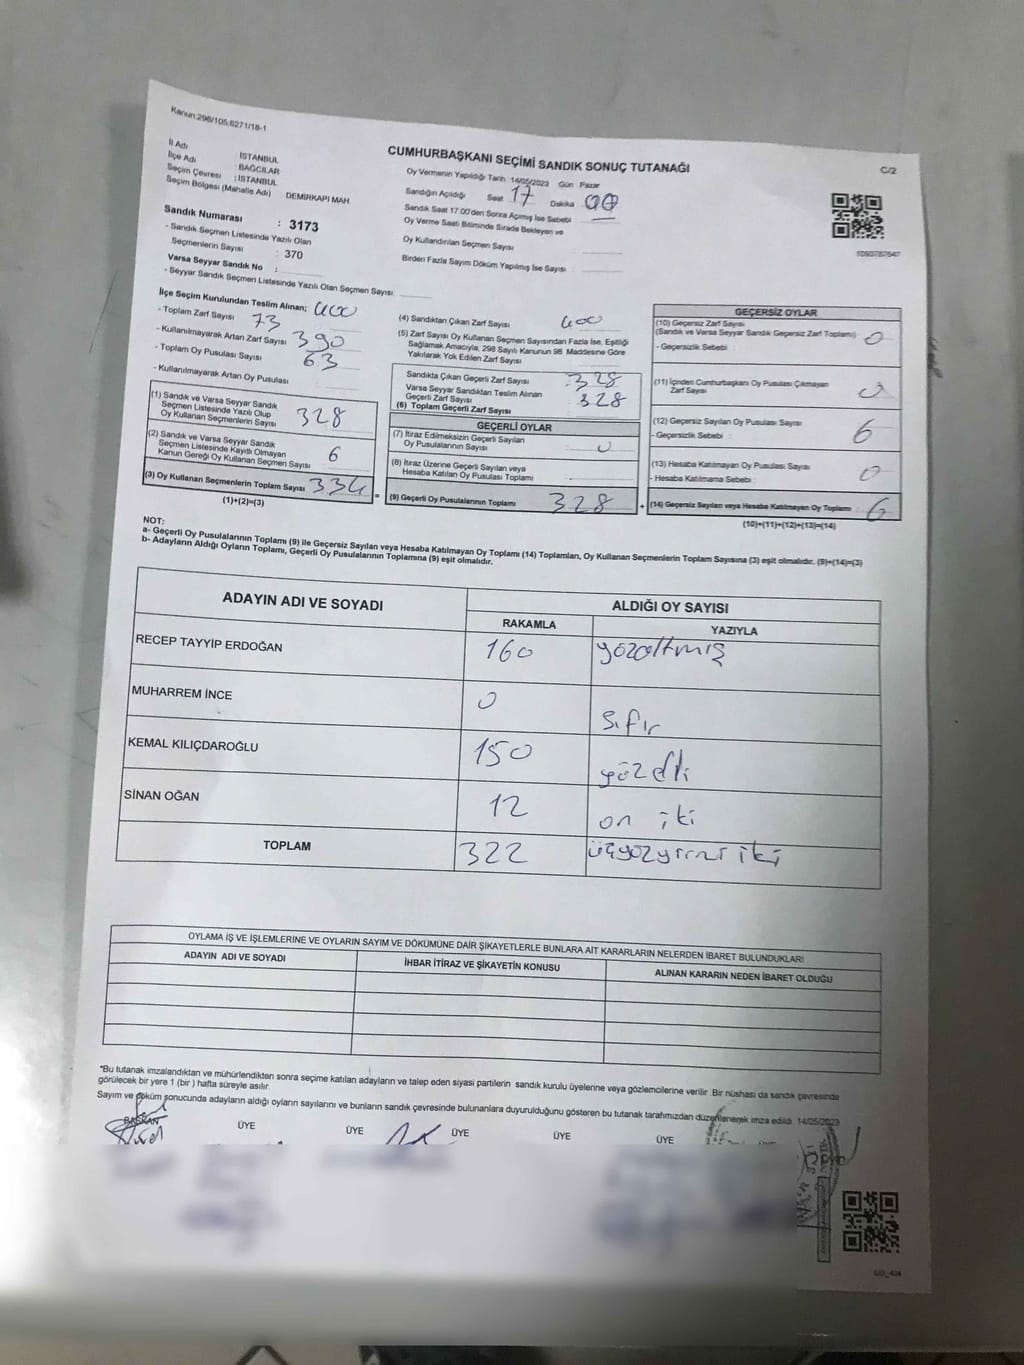 Kanun:298/105,6271/18-1
CUMHURBAŞKANI SEÇİMİ SANDIK SONUÇ TUTANAĞI
C/2
İl Adı : İSTANBUL
İlçe Adı : BAĞCILAR
Seçim Çevresi : İSTANBUL
Seçim Bölgesi (Mahalle Adı) DEMİRKAPI MAH
Sandık Numarası : 3173
- Sandık Seçmen Listesinde Yazılı Olan
Seçmenlerin Sayısı : 370
Varsa Seyyar Sandık No :
- Seyyar Sandık Seçmen Listesinde Yazılı Olan Seçmen Sayısı
Oy Vermenin Yapıldığı Tarih :14/05/2023 Gün Pazar
Sandığın Açıldığı Saat 17 Dakika 00
Sandık Saat 17:00'den Sonra Açımış İse Sebebi
Oy Verme Saati Bitiminde Sırada Bekleyen ve
Oy Kullandırılan Seçmen Sayısı
Birden Fazla Sayım Döküm Yapılmış İse Sayısı
1093787647
İlçe Seçim Kurulundan Teslim Alınan;
- Toplam Zarf Sayısı 400
- Kullanılmayarak Artan Zarf Sayısı 73
- Toplam Oy Pusulası Sayısı 390
- Kullanılmayarak Artan Oy Pusulası 63
(1) Sandık ve Varsa Seyyar Sandık
Seçmen Listesinde Yazılı Olup
Oy Kullanan Seçmenlerin Sayısı 328
(2) Sandık ve Varsa Seyyar Sandık
Seçmen Listesinde Kayıtlı Olmayan
Kanun Gereği Oy Kullanan Seçmen Sayısı 6
(3) Oy Kullanan Seçmenlerin Toplam Sayısı 334 =
(1)+(2)=(3)
(4) Sandıktan Çıkan Zarf Sayısı 400
(5) Zarf Sayısı Oy Kullanan Seçmen Sayısından Fazla İse, Eşitliği
Sağlamak Amacıyla, 298 Sayılı Kanunun 98. Maddesine Göre
Yakılarak Yok Edilen Zarf Sayısı
Sandıkta Çıkan Geçerli Zarf Sayısı : 328
Varsa Seyyar Sandıktan Teslim Alınan
Geçerli Zarf Sayısı : 328
(6) Toplam Geçerli Zarf Sayısı
GEÇERLİ OYLAR
(7) İtiraz Edilmeksizin Geçerli Sayılan
Oy Pusulalarının Sayısı 0
(8) İtiraz Üzerine Geçerli Sayılan veya
Hesaba Katılan Oy Pusulası Toplamı
(9) Geçerli Oy Pusulalarının Toplamı 328 +
GEÇERSİZ OYLAR
(10) Geçersiz Zarf Sayısı
(Sandık ve Varsa Seyyar Sandık Geçersiz Zarf Toplamı) 0
- Geçersizlik Sebebi :
(11) İçinden Cumhurbaşkanı Oy Pusulası Çıkmayan
Zarf Sayısı 0
(12) Geçersiz Sayılan Oy Pusulası Sayısı 6
- Geçersizlik Sebebi :
(13) Hesaba Katılmayan Oy Pusulası Sayısı 0
- Hesaba Katılmama Sebebi :
(14) Geçersiz Sayılan veya Hesaba Katılmayan Oy Toplamı 6
(10)+(11)+(12)+(13)=(14)
NOT:
a- Geçerli Oy Pusulalarının Toplamı (9) ile Geçersiz Sayılan veya Hesaba Katılmayan Oy Toplamı (14) Toplamları, Oy Kullanan Seçmenlerin Toplam Sayısına (3) eşit olmalıdır. (9)+(14)=(3)
b- Adayların Aldığı Oyların Toplamı, Geçerli Oy Pusulalarının Toplamına (9) eşit olmalıdır.
ADAYIN ADI VE SOYADI ALDIĞI OY SAYISI
RAKAMLA YAZIYLA
RECEP TAYYİP ERDOĞAN 160 yüzaltmış
MUHARREM İNCE 0 sıfır
KEMAL KILIÇDAROĞLU 150 yüz elli
SİNAN OĞAN 12 on iki
TOPLAM 322 üçyüzyirmi iki
OYLAMA İŞ VE İŞLEMLERİNE VE OYLARIN SAYIM VE DÖKÜMÜNE DAİR ŞİKAYETLERLE BUNLARA AİT KARARLARIN NELERDEN İBARET BULUNDUKLARI
ADAYIN ADI VE SOYADI İHBAR İTİRAZ VE ŞİKAYETİN KONUSU ALINAN KARARIN NEDEN İBARET OLDUĞU
*Bu tutanak imzalandıktan ve mühürlendikten sonra seçime katılan adayların ve talep eden siyasi partilerin sandık kurulu üyelerine veya gözlemcilerine verilir. Bir nüshası da sandık çevresinde
görülecek bir yere 1 (bir ) hafta süreyle asılır.
Sayım ve döküm sonucunda adayların aldığı oyların sayılarını ve bunların sandık çevresinde bulunanlara duyurulduğunu gösteren bu tutanak tarafımızdan düzenlenerek imza edildi. 14/05/2023
BAŞKAN ÜYE ÜYE ÜYE ÜYE ÜYE ÜYE